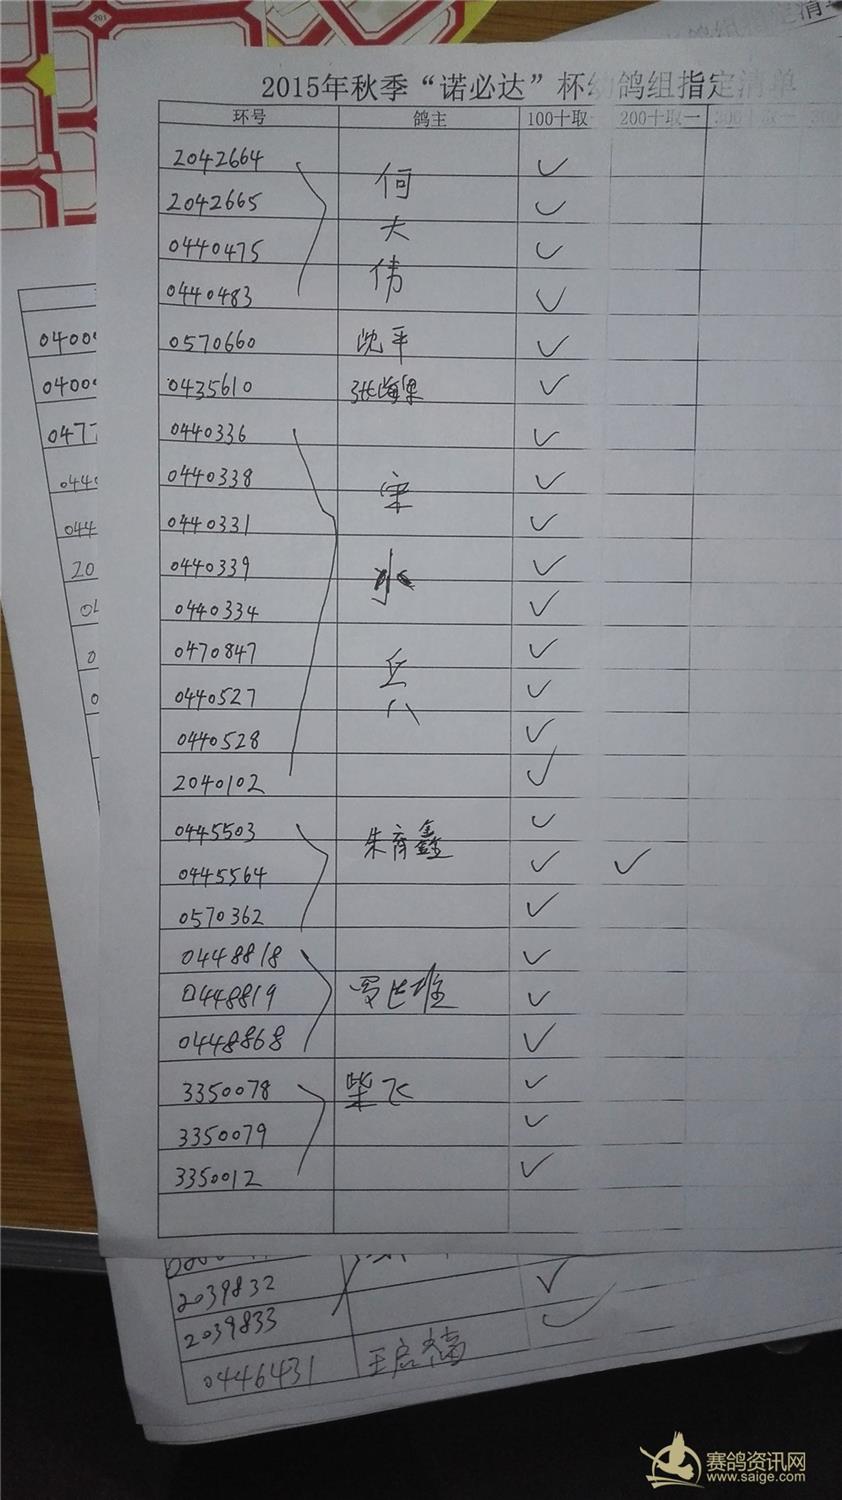 201
2015年秋季“诺必达”杯幼鸽组指定清单
环号 鸽主 100十取一 200十取一 300十取一
2042664 ✓
2042665 何 ✓
0440475 大 ✓
0440483 伟 ✓
0570660 沈平 ✓
0435610 ✓
0440336 ✓
0440338 宋 ✓
0440331 ✓
0440339 水 ✓
0440334 ✓
0470847 ✓
0440527 兵 ✓
0440528 ✓
2040102 ✓
0445503 朱育鑫 ✓
0445564 ✓ ✓
0570362 ✓
0448818 ✓
0448819 ✓
0448868 ✓
3350078 柴飞 ✓
3350079 ✓
3350012 ✓
2039832 ✓
2039833 ✓
0446431
赛鸽资讯网
www.saige.com